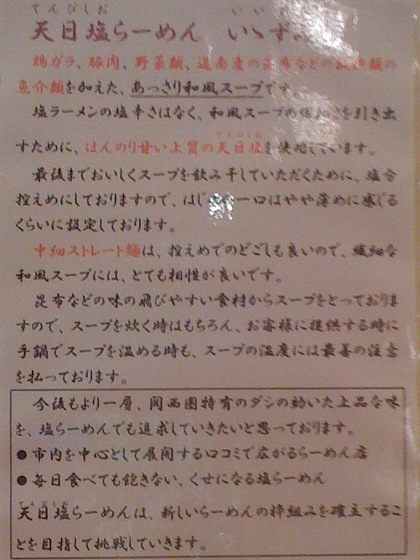 てんぴしお
天日塩らーめん
鶏ガラ、豚肉、野菜類、道南産の昆布などの
魚介類を加えた、あっさり和風スープです。
塩ラーメンの塩辛さはなく、和風スープの を引き出
てんぴしお
すために、ほんのり甘い上質の天日塩を使用しています。
最後までおいしくスープを飲み干していただくために、塩分
控えめにしておりますので、はじめの一口はやや薄めに感じる
くらいに設定しております。
中細ストレート麺は、控えめでのどごしも良いので、繊細な
和風スープには、とても相性が良いです。
昆布などの味の飛びやすい食材からスープをとっておりま
すので、スープを炊く時はもちろん、お客様に提供する時に
手鍋でスープを温める時も、スープの温度には最善の注意
を払っております。
今後もより一層、関西圏特有のダシの効いた上品な味
を、塩らーめんでも追求していきたいと思っております。
●市内を中心として展開する口コミで広がるらーめん店
●毎日食べても飽きない、くせになる塩らーめん
てんぴしお
天日塩らーめんは、新しいらーめんの枠組みを確立するこ
とを目指して挑戦していきます。